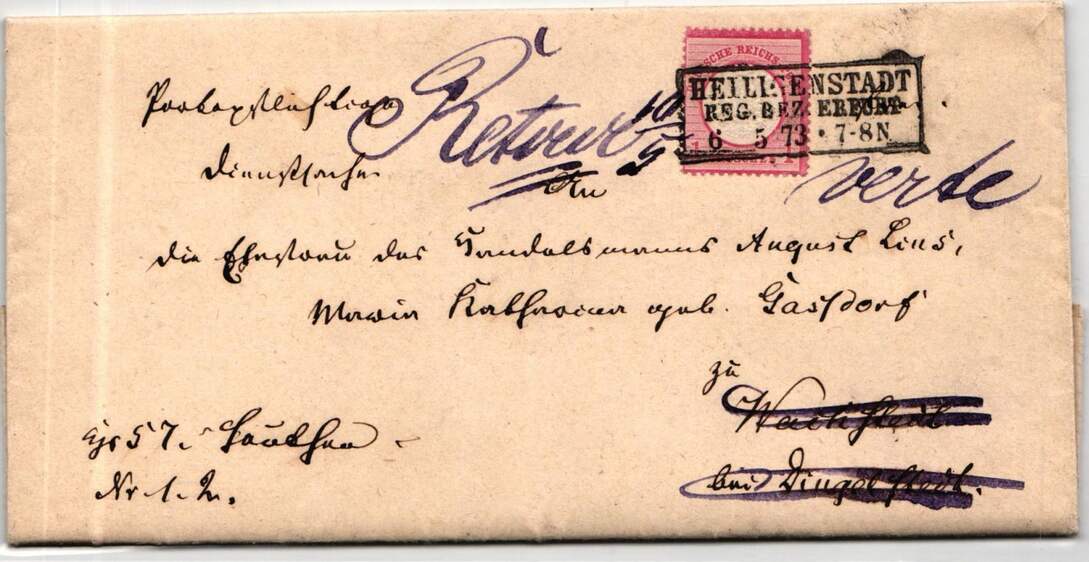 Portopflichtige
Dienstsache
Retour 10/5
DEUTSCHE REICHS
HEILIGENSTADT
REG. BEZ. ERFURT
6 5 73 • 7-8N
verte
An
die Ehefrau des Handelsmanns August Lins,
Maria Katharina geb. Gassdorf
zu
Wachstedt
bei Dingelstedt.
57.
Nr 1. M.